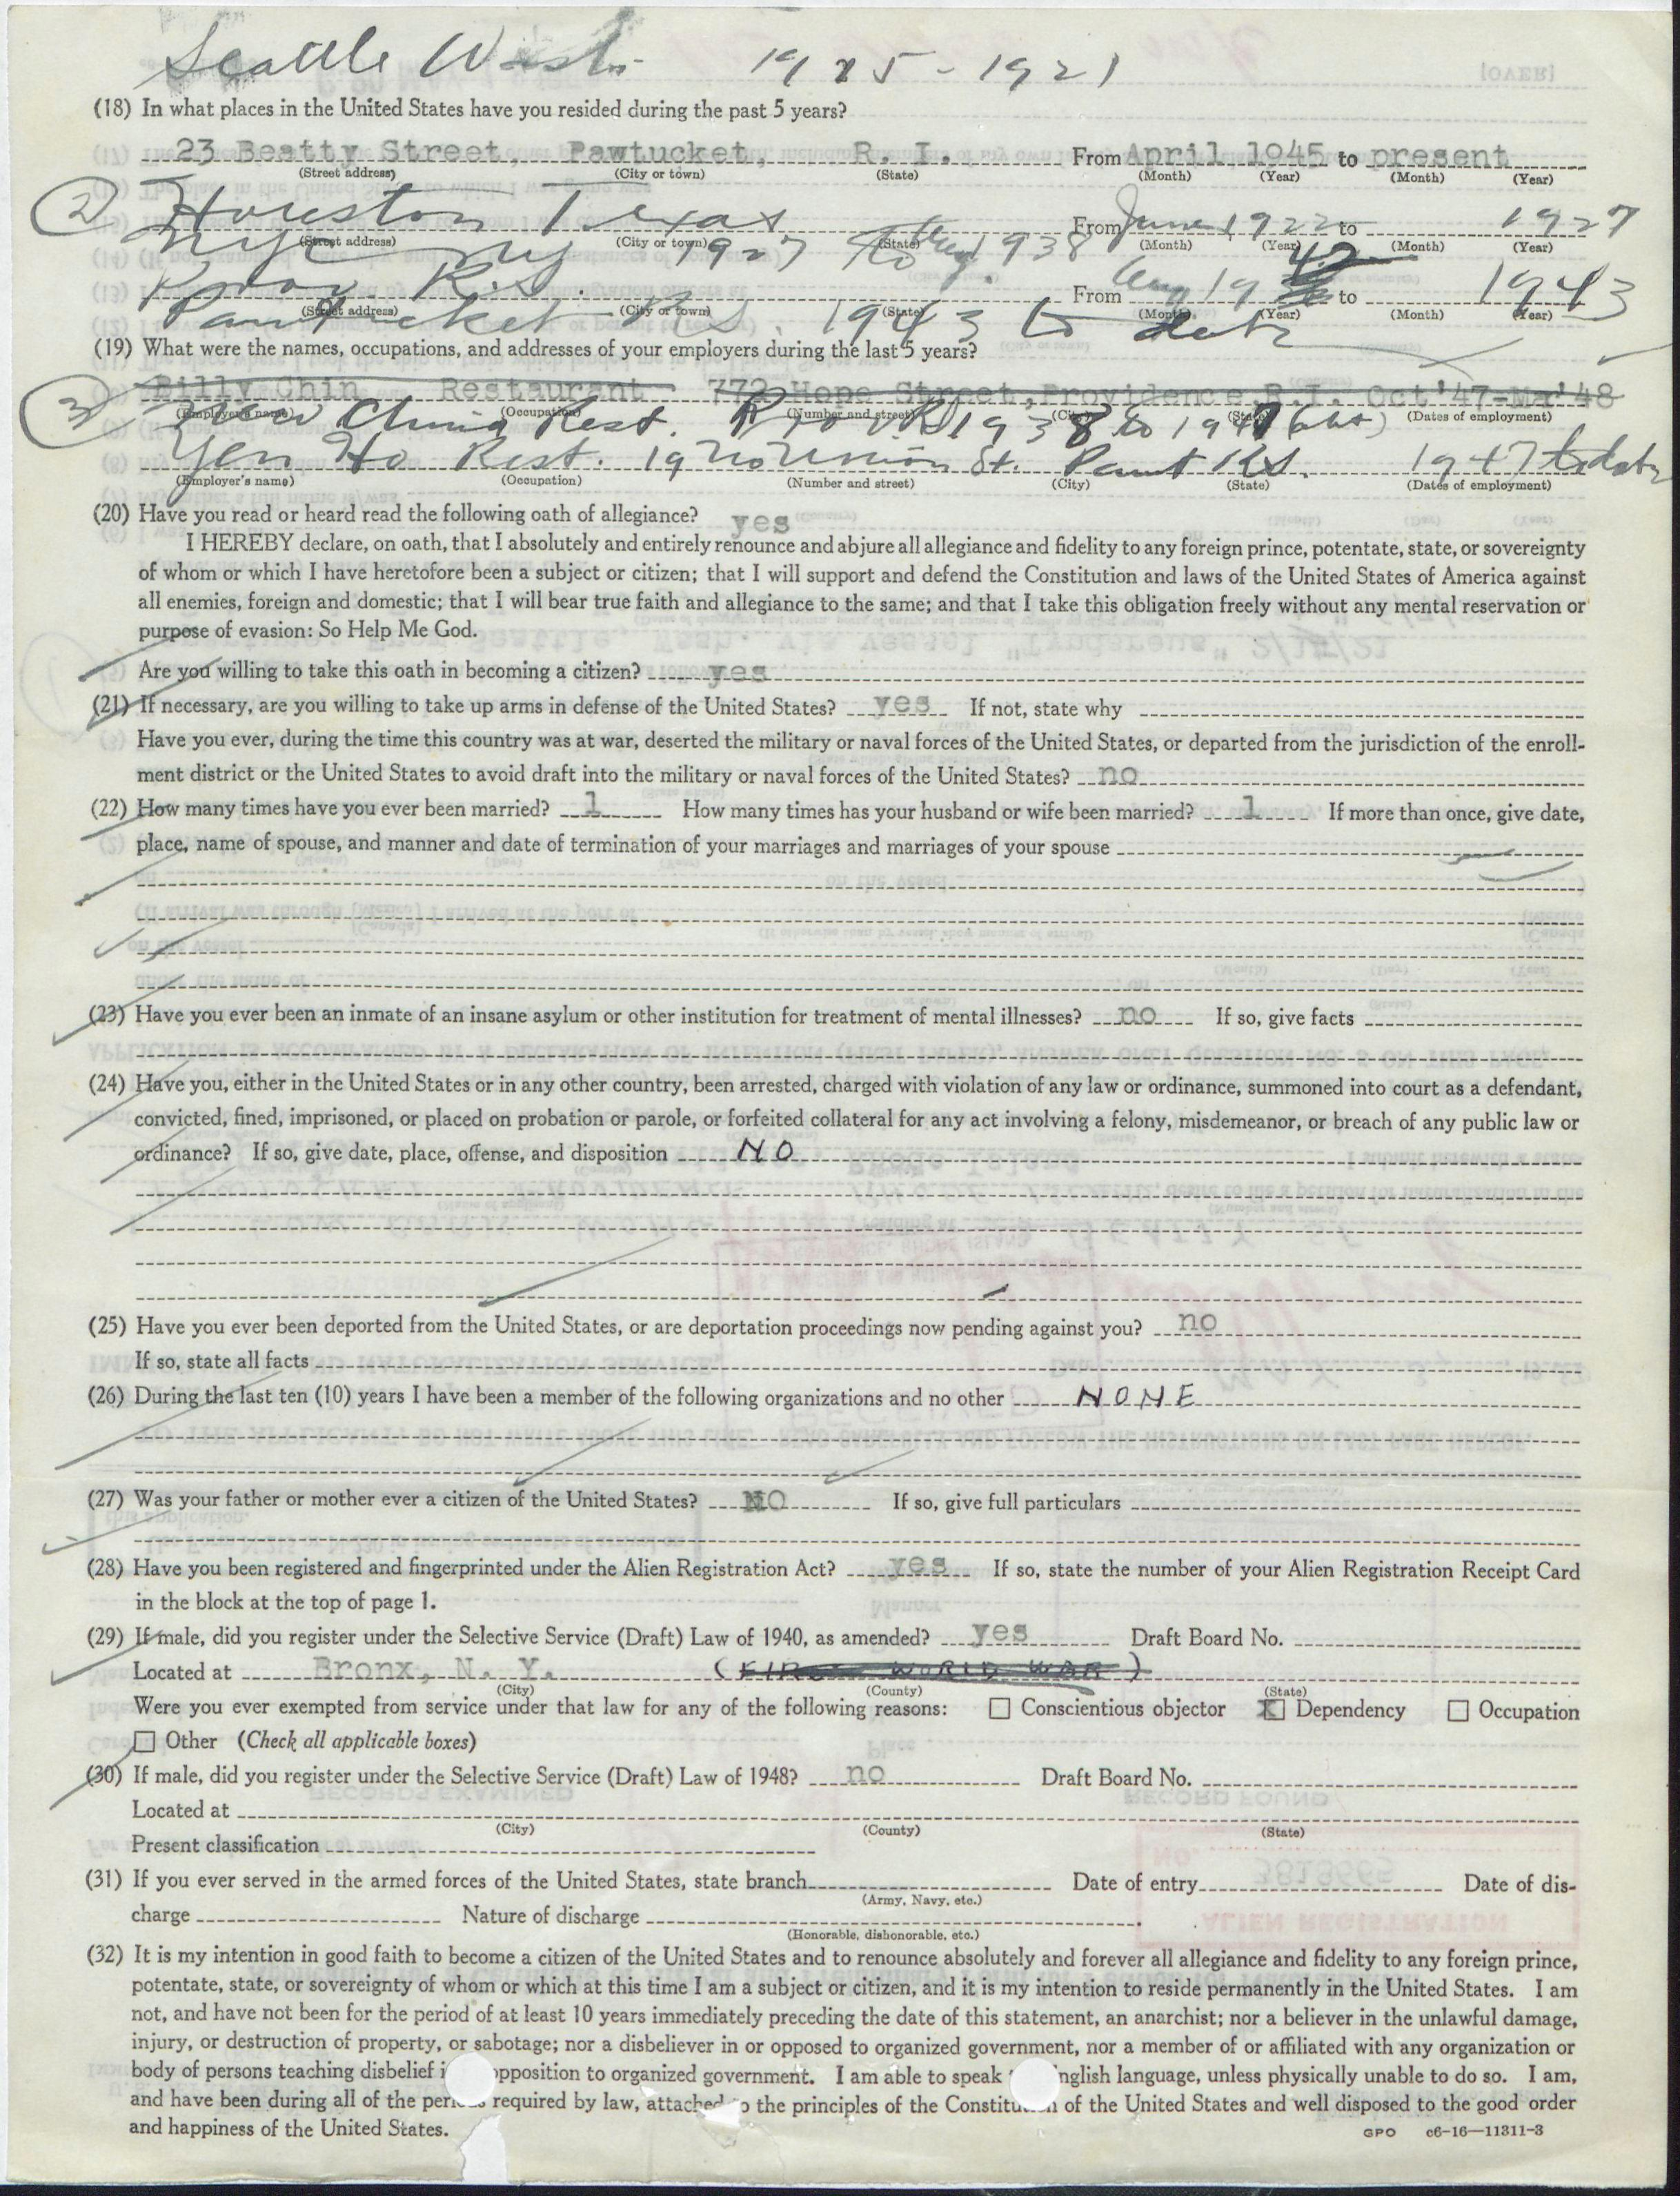 Seattle Wash. 1915-1921
(18) In what places in the United States have you resided during the past 5 years?
23 Beatty Street, Pawtucket, R. I. From April 1945 to present
(Street address) (City or town) (State) (Month) (Year) (Month) (Year)
2 Houston Texas From June 1922 to 1927
(Street address) (City or town) (State) (Month) (Year) (Month) (Year)
NYC NY 1927 to 1938
Prov. R.I. From Aug 19 42 to 1943
(Street address) (City or town) (State) (Month) (Year) (Month) (Year)
Pawtucket R.I. 1943 to date
(19) What were the names, occupations, and addresses of your employers during the last 5 years?
Billy Chin Restaurant 772 Hope Street, Providence, R.I. Oct'47-Ma'48
(Employer's name) (Occupation) (Number and street) (City) (State) (Dates of employment)
3 New China Rest. Prov RI 1938 to 1947 (abt)
Yen Ho Rest. 19 No Union St. Pawt RI. 1947 to date
(Employer's name) (Occupation) (Number and street) (City) (State) (Dates of employment)
(20) Have you read or heard read the following oath of allegiance? yes
I HEREBY declare, on oath, that I absolutely and entirely renounce and abjure all allegiance and fidelity to any foreign prince, potentate, state, or sovereignty
of whom or which I have heretofore been a subject or citizen; that I will support and defend the Constitution and laws of the United States of America against
all enemies, foreign and domestic; that I will bear true faith and allegiance to the same; and that I take this obligation freely without any mental reservation or
purpose of evasion: So Help Me God.
Are you willing to take this oath in becoming a citizen? yes
(21) If necessary, are you willing to take up arms in defense of the United States? yes If not, state why
Have you ever, during the time this country was at war, deserted the military or naval forces of the United States, or departed from the jurisdiction of the enroll-
ment district or the United States to avoid draft into the military or naval forces of the United States? no
(22) How many times have you ever been married? 1 How many times has your husband or wife been married? 1 If more than once, give date,
place, name of spouse, and manner and date of termination of your marriages and marriages of your spouse
(23) Have you ever been an inmate of an insane asylum or other institution for treatment of mental illnesses? no If so, give facts
(24) Have you, either in the United States or in any other country, been arrested, charged with violation of any law or ordinance, summoned into court as a defendant,
convicted, fined, imprisoned, or placed on probation or parole, or forfeited collateral for any act involving a felony, misdemeanor, or breach of any public law or
ordinance? If so, give date, place, offense, and disposition NO
(25) Have you ever been deported from the United States, or are deportation proceedings now pending against you? no
If so, state all facts
(26) During the last ten (10) years I have been a member of the following organizations and no other NONE
(27) Was your father or mother ever a citizen of the United States? NO If so, give full particulars
(28) Have you been registered and fingerprinted under the Alien Registration Act? yes If so, state the number of your Alien Registration Receipt Card
in the block at the top of page 1.
(29) If male, did you register under the Selective Service (Draft) Law of 1940, as amended? yes Draft Board No.
Located at Bronx, N. Y. (FIRST WORLD WAR)
(City) (County) (State)
Were you ever exempted from service under that law for any of the following reasons: Conscientious objector X Dependency Occupation
Other (Check all applicable boxes)
(30) If male, did you register under the Selective Service (Draft) Law of 1948? no Draft Board No.
Located at
(City) (County) (State)
Present classification
(31) If you ever served in the armed forces of the United States, state branch Date of entry Date of dis-
(Army, Navy, etc.)
charge Nature of discharge
(Honorable, dishonorable, etc.)
(32) It is my intention in good faith to become a citizen of the United States and to renounce absolutely and forever all allegiance and fidelity to any foreign prince,
potentate, state, or sovereignty of whom or which at this time I am a subject or citizen, and it is my intention to reside permanently in the United States. I am
not, and have not been for the period of at least 10 years immediately preceding the date of this statement, an anarchist; nor a believer in the unlawful damage,
injury, or destruction of property, or sabotage; nor a disbeliever in or opposed to organized government, nor a member of or affiliated with any organization or
body of persons teaching disbelief opposition to organized government. I am able to speak English language, unless physically unable to do so. I am,
and have been during all of the period required by law, attached to the principles of the Constitution of the United States and well disposed to the good order
and happiness of the United States.
GPO c6-16-11311-3